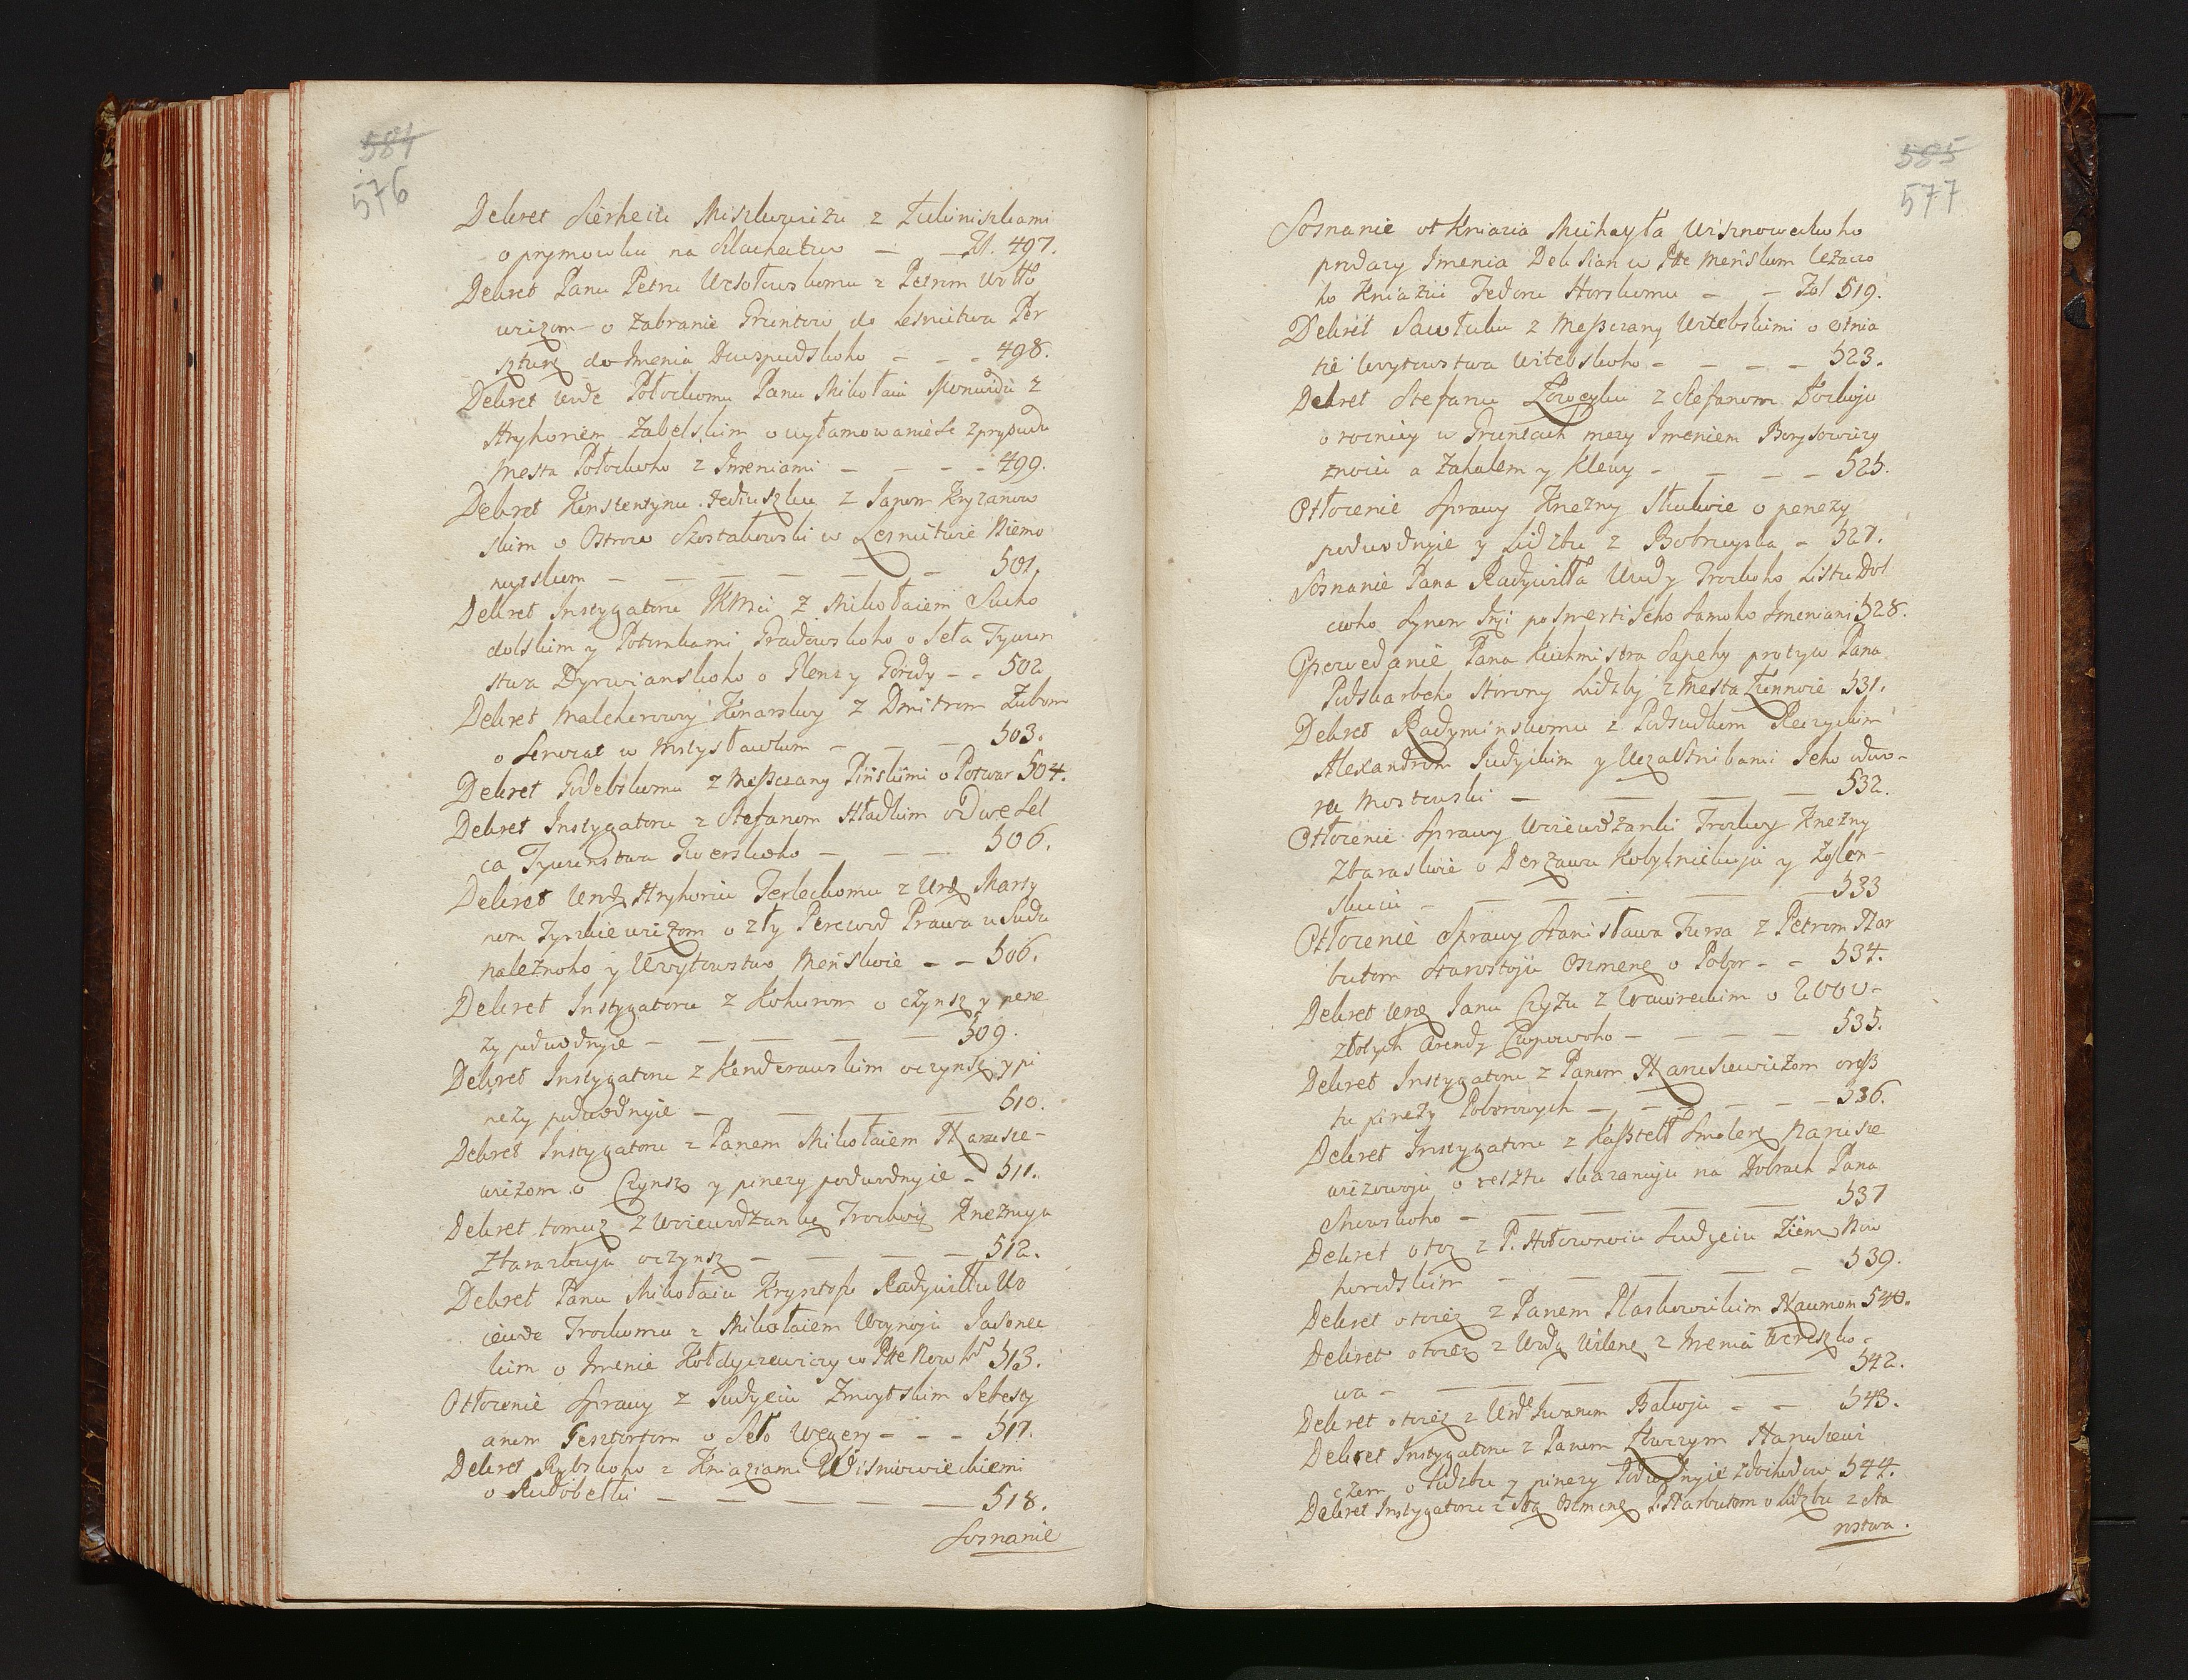 584
576
Dekret Sierheiu Miszkowiczu z Łukiniszkami
o prymowku na Szlachectwo — — Zł. 497.
Dekret Panu Petru Wesołowskomu z Petrom Wołło
wiczom — o Zabranie Gruntow do Lesnictwa Per
do Imenia Dowspudskoho — — — 498.
Dekret Połockomu Panu Mikołaiu Monwidu z
Hryhoriem Zabelskim o wyłamowanie se z prysudu
Mesta Połockoho z Imeniami — — — 499.
Dekret Konstentynu z Janom Kryzanow
skim o Ostrow Szostakowski w Lesnictwie Niemo
— — — — — 501.
Dekret Instygatoru JKMci z Mikołaiem Sucho
dolskim y Potomkami Gradowskoho o Seła Tywun
stwa Dyrwianskoho o Glensy Gordy — — 502
Dekret Malcherowoy Konarskoy z Dmitrom Zubom
o w Mstysławlum — — — 503.
Dekret Godebskomu z Meszczany Pińskimi o Potwar 504.
Dekret Instygatoru z Stefanom Hładkim o Dwe Sel
ca Tywunstwa — — — 506.
Dekret Urdz Hryhoriu Terleckomu z Urdz Marty
nom Tyszkiewiczom o zły Perewod Prawa u Sudu
należnoho y Woytowstwo Meńskoie — — 506.
Dekret Instygatoru z Kohurom o czynsz y pene
zy podwodnyie — — — — — 509.
Dekret Instygatoru z Kenderawskim o czynsz y pi
nezy podwodnyie — — — 510.
Dekret Instygatoru z Panem Mikołaiem Naruse-
wiczom o Czynsz y pinezy podwodnyie — 511.
Dekret tomuz z Woiewodzankoy Trockoy Knezniya
Zbarazkuju o czynsz — — — — 512.
Dekret Panu Mikołaiu Krysztofu Radywiłłu Wo
iewode Trockomu z Mikołaiem Woynoju Jasonec
kim o Imenie Kołdyczewiczy w Pwte Now 513.
Otłożenie Sprawy z Sudyeiu Zmoytskim Sebesty
anom Gesztortom o Seło Wegery — — — 517.
Dekret Rybskoho z Kniaziami Wisniowieckiemi
o Rudobełki — — — — — 518.
Sosnanie

585
577
Sosnanie ot Kniazia Michayła Wisznoweckoho
prodazy Imenia w Pwte Meńskum lezaczo
ho Kniaziu Fedoru Horskomu — — Zoł 519.
Dekret Sawłuku z Meszczany Witebskimi o otnia
tie Woytowstwa Witebskoho — — — — 523.
Dekret Stefanu z Stefanom Dowkoju
o roznicy w Gruntach mezy Imeniem Borysowiczy
a Zahalem y Klewy — — — — 525.
Otłozenie Sprawy Knezny Słuckoie o penezy
podwodnyie y Lidzbu z Bobruyska — 527.
Sosnanie Pana Radywiłła Wwdy Trockoho Listu
cwoho Synom Jeji po smerti Jeho samoho Imeniami 528.
Opowedanie Pana Kuchmistra Sapehy protyw Pana
Podskarbeho Storony Lidzby z Mesta 531.
Dekret Radyminskomu z Podsudkom Reczyckim
Alexandrom Judyckim y Uczastnikami Jeho o dwo-
ru Mostowski — — — — 532.
Otłozenie Sprawy Woiewodzanki Trockoy Knezny
Zbaraskoie o Derzawu Kobylnickuju y Zoslen-
skuiu — — — — — 533
Otłozenie Sprawy Stanisława Tursa z Petrom Nar
butom Starostoju Oszmenz o Pobor — — 534.
Dekret Urdz Janu Czyzu z Wawreckim o 2000-
złotych Arendy Czopowoho — — — — 535.
Dekret Instygatoru z Panem Naruszewiczom o resz
tu pinezy Poborowych — — — — — — 536.
Dekret Instygatoru z Kasztelł Smolenz Naruse
wiczowoju o resztu skazanuju na Dobrach Pana
— — — — — 537
Dekret o toz z P. Hołownieiu Sudyeiu Ziem Now
horodskim — — — — — 539.
Dekret o toiez z Panem Płaskowickim Naumom 540.
Dekret o toiez z Wwdz Wilenz z Imenia Wereszko-
wa — — — — — 542.
Dekret o toiez z Urdz Iwanom Bakoju — — 543.
Dekret Instygatoru z Panem Łowczym Narusiewi
czem o Lidzbu y pinezy Podwodnyie z dochodow 544.
Dekret Instygatoru z Stą Oszmenz P. Narbutom o Lidzbu z Sta
rostwa.